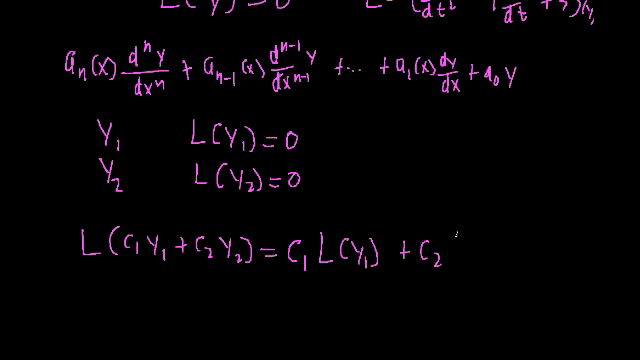 L(Y) = 0 L = ( d/dt
aₙ(x) dⁿy/dxⁿ + aₙ₋₁(x) dⁿ⁻¹y/dxⁿ⁻¹ + ... + a₁(x) dy/dx + a₀ y
Y₁ L(Y₁) = 0
Y₂ L(Y₂) = 0
L(C₁Y₁ + C₂Y₂) = C₁ L(Y₁) + C₂